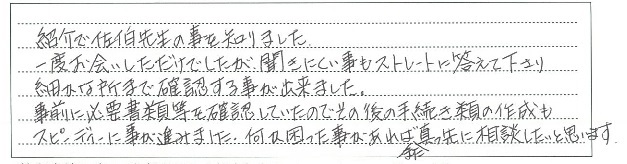 紹介で佐伯先生の事を知りました。
一度お会いしただけでしたが、聞きにくい事もストレートに答えて下さり
細かな所まで確認する事が出来ました。
事前に必要書類等を確認していたのでその後の手続き類の作成も
スピーディーに事が進みました。何か困った事があれば真っ先に相談したいと思います。